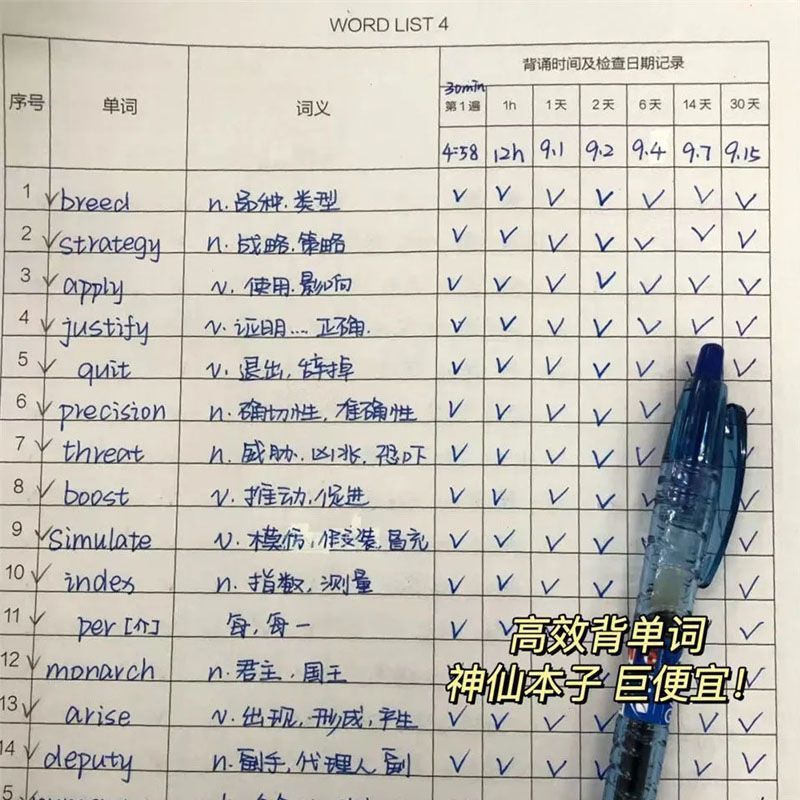 WORD LIST 4
序号 单词 词义 背诵时间及检查日期记录
30min
第1遍 1h 1天 2天 6天 14天 30天
4:58 12h 9.1 9.2 9.4 9.7 9.15
1 breed n. 品种.类型
2 strategy n. 战略.策略
3 apply v. 使用.影响
4 justify v. 证明....正确.
5 quit v. 退出,辞掉
6 precision n. 确切性,准确性
7 threat n. 威胁.凶兆,恐吓
8 boost v. 推动,促进
9 Simulate v. 模仿,假装,冒充
10 index n. 指数,测量
11 per [介] 每,每一
12 monarch n. 君主,国王
13 arise v. 出现,形成,产生
14 deputy n. 副手,代理人 副
5
高效背单词
神仙本子 巨便宜!